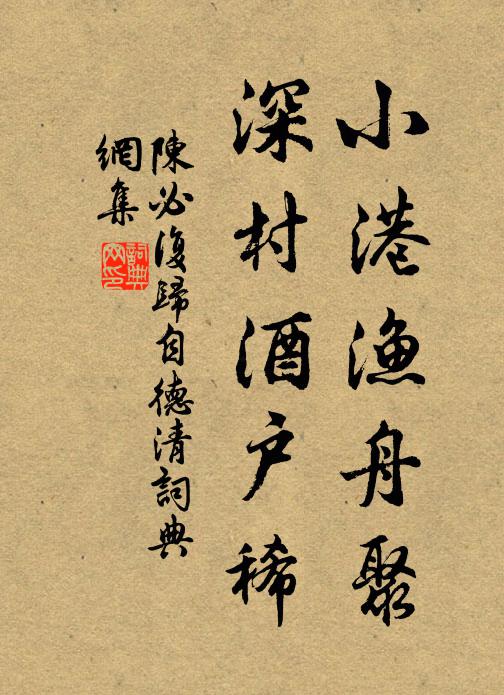 小港漁舟聚
深村酒户稀
陳必復歸自德清詞典
網集
詞典
网印